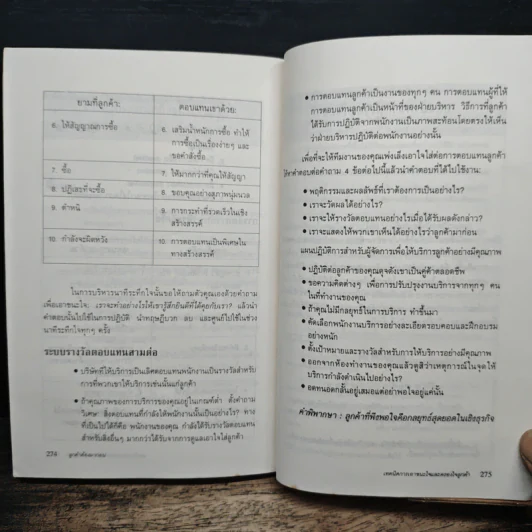 ยามที่ลูกค้า: ตอบแทนเขาด้วย:
6. ให้สัญญาณการซื้อ 6. เสริมน้ำหนักการซื้อ ทำให้
การซื้อเป็นเรื่องง่ายๆ และ
ขอคำสั่งซื้อ
7. ซื้อ 7. ให้มากกว่าที่คุณให้สัญญา
8. ปฏิเสธที่จะซื้อ 8. ขอบคุณอย่างสุภาพนุ่มนวล
9. ตำหนิ 9. การกระทำที่รวดเร็วในเชิง
สร้างสรรค์
10. กำลังจะผิดหวัง 10. การตอบแทนเป็นพิเศษใน
ทางสร้างสรรค์
ในการบริหารนาทีระทึกใจนั้นขอให้ถามตัวคุณเองด้วยคำถาม
เพื่อเอาชนะใจ: เราจะทำอย่างไรให้เขารู้สึกยินดีที่ได้คุยกับเรา? แล้วนำ
คำตอบนั้นไปใช้ในการปฏิบัติ นำทฤษฎีบวก ลบ และศูนย์ไปใช้ในช่วง
นาทีระทึกใจทุกๆ ครั้ง
ระบบรางวัลตอบแทนสามต่อ
• บริษัทที่ให้บริการเป็นเลิศตอบแทนพนักงานเป็นรางวัลสำหรับ
การที่พวกเขาให้บริการเช่นนั้นแก่ลูกค้า
• ถ้าคุณภาพของการบริการของคุณอยู่ในเกณฑ์ต่ำ ตั้งคำถาม
วิเศษ: สิ่งตอบแทนที่กำลังให้พนักงานนั้นเป็นอย่างไร? ทาง
ที่เป็นไปได้ก็คือ พนักงานของคุณ กำลังได้รับรางวัลตอบแทน
สำหรับสิ่งอื่นๆ มากกว่าได้รับจากการดูแลเอาใจใส่ลูกค้า
274
• การตอบแทนลูกค้าเป็นงานของทุกๆ คน การตอบแทนผู้ที่ให้
การตอบแทนลูกค้าเป็นหน้าที่ของฝ่ายบริหาร วิธีการที่ลูกค้า
ได้รับการปฏิบัติจากพนักงานเป็นภาพสะท้อนโดยตรงให้เห็น
ว่าฝ่ายบริหารปฏิบัติต่อพนักงานอย่างนั้น
เพื่อที่จะให้ทีมงานของคุณเพ่งเล็งเอาใจใส่ต่อการตอบแทนลูกค้า
ให้หาคำตอบต่อคำถาม 4 ข้อต่อไปนี้แล้วนำคำตอบที่ได้ไปใช้งาน:
• พฤติกรรมและผลลัพธ์ที่เราต้องการเป็นอย่างไร?
• เราจะวัดผลได้อย่างไร?
• เราจะให้รางวัลตอบแทนอย่างไรเมื่อได้รับผลดังกล่าว?
• เราจะแสดงให้พวกเขาเห็นได้อย่างไรว่าลูกค้ามาก่อน
แผนปฏิบัติการสำหรับผู้จัดการเพื่อให้บริการลูกค้าอย่างมีคุณภาพ
• ปฏิบัติต่อลูกค้าของคุณดุจดังเขาเป็นคู่ค้าตลอดชีพ
• ขอความคิดต่างๆ เพื่อการปรับปรุงงานบริการจากทุกๆ คน
ในที่ทำงานของคุณ
• ถ้าคุณไม่มีกลยุทธ์ในการบริการ ทำขึ้นมา
• คัดเลือกพนักงานบริการอย่างละเอียดรอบคอบและฝึกอบรม
อย่างหนัก
• ตั้งเป้าหมายและรางวัลสำหรับการให้บริการอย่างมีคุณภาพ
• ออกจากห้องทำงานของคุณแล้วดูสิว่าเหตุการณ์ในจุดให้
บริการกำลังดำเนินไปอย่างไร?
• อดทนอดกลั้นอยู่เสมอแต่อย่าพอใจอยู่แค่นั้น
คำพิพากษา : ลูกค้าที่พึงพอใจคือกลยุทธ์สุดยอดในเชิงธุรกิจ
275